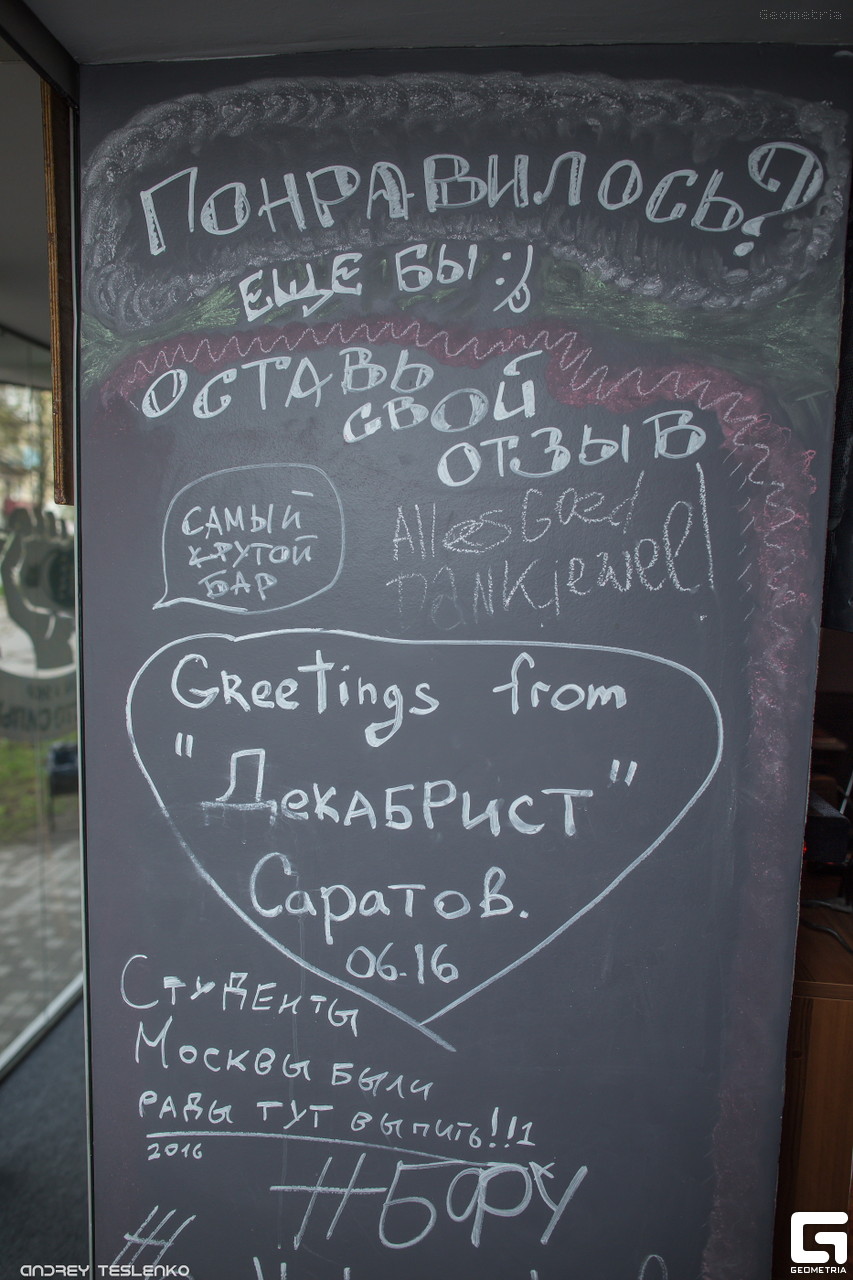 Geometria
Понравилось?
Еще бы :)
Оставь
свой
отзыв
Самый
крутой
бар
Alles Goed
Dankjewel!
Greetings from
"Декабрист"
Саратов.
06.16
Студенты
Москвы были
рады тут выпить!!1
2016
#БФУ
#
ANDREY TESLENKO
GEOMETRIA